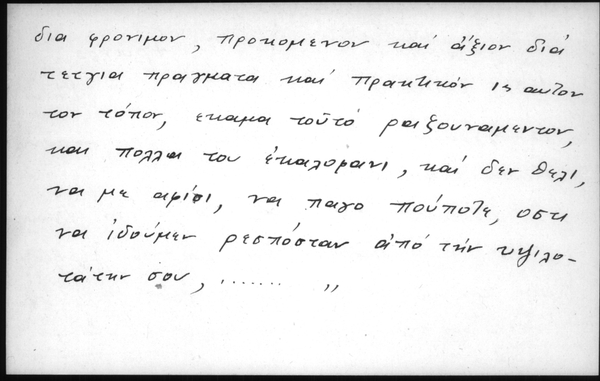 δια φρονιμον, προκομενον καί άξιον διά
τετγια πραγματα καί πρακτικόν ις αυτον
τον τόπον, εκαμα τούτό ραιζουναμεντον,
και πολλα του εκαλοφανι, καί δεν θελι,
να με αφίσι, να παγο πούποτε, οστι
να ιδούμεν ρεσπόσταν από τήν υψιλο-
τάτην σου, ....... ,,